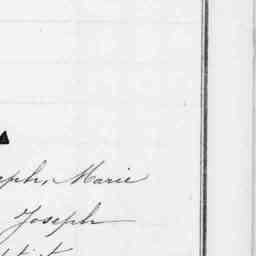 eph, Marie
Joseph